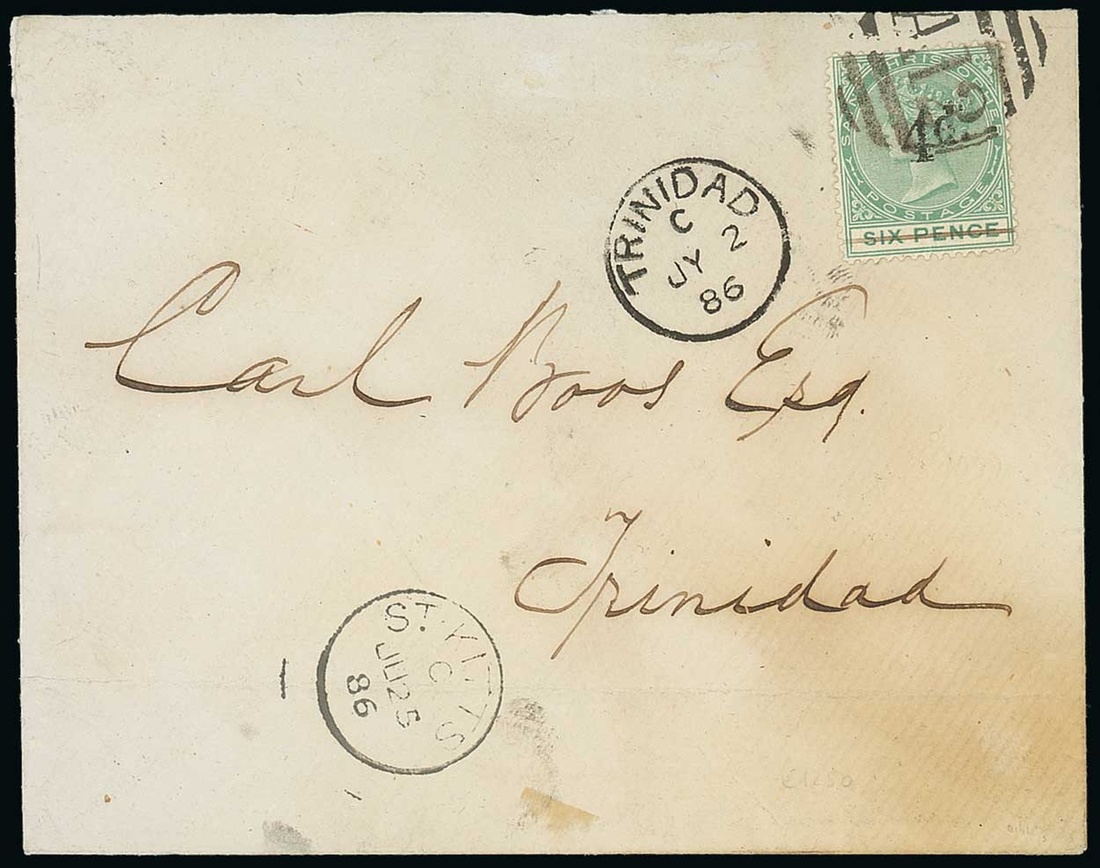 A12
SAINT CHRISTOPHER
4d.
POSTAGE
SIX PENCE
TRINIDAD
C
JY 2
86
Carl Boos Esq.
Trinidad
ST. KITTS
C
JU 25
86